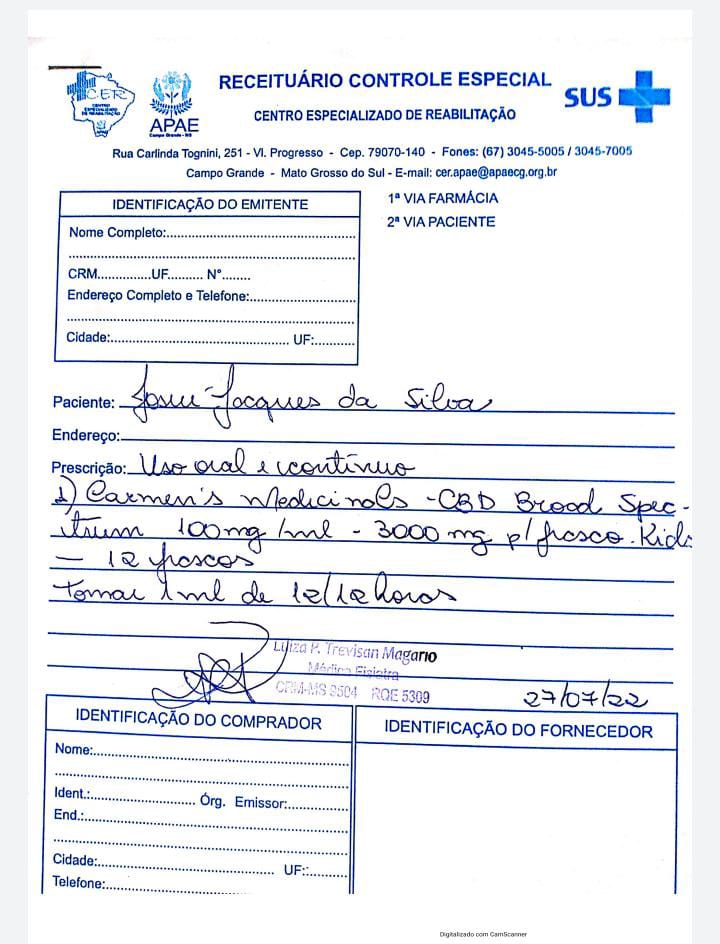 RECEITUÁRIO CONTROLE ESPECIAL
CER
CENTRO ESPECIALIZADO DE REABILITAÇÃO
APAE
Campo Grande - MS
SUS
CENTRO ESPECIALIZADO DE REABILITAÇÃO
Rua Carlinda Tognini, 251 - Vl. Progresso - Cep. 79070-140 - Fones: (67) 3045-5005 / 3045-7005
Campo Grande - Mato Grosso do Sul - E-mail: cer.apae@apaecg.org.br
IDENTIFICAÇÃO DO EMITENTE
Nome Completo:
CRM UF Nº
Endereço Completo e Telefone:
Cidade: UF:
1ª VIA FARMÁCIA
2ª VIA PACIENTE
Paciente: Jacques da Silva
Endereço:
Prescrição: Uso oral e contínuo
1) Carmen's Medicinals - CBD Broad Spec-
trum 100mg/ml - 3000 mg p/ frasco. Kids
— 12 frascos
Tomar 1ml de 12/12 horas
Luiza P. Trevisan Magario
Médica Fisiatra
CRM-MS 9504 RQE 5309
27/07/22
IDENTIFICAÇÃO DO COMPRADOR
Nome:
Ident.: Órg. Emissor:
End.:
Cidade: UF:
Telefone:
IDENTIFICAÇÃO DO FORNECEDOR
Digitalizado com CamScanner